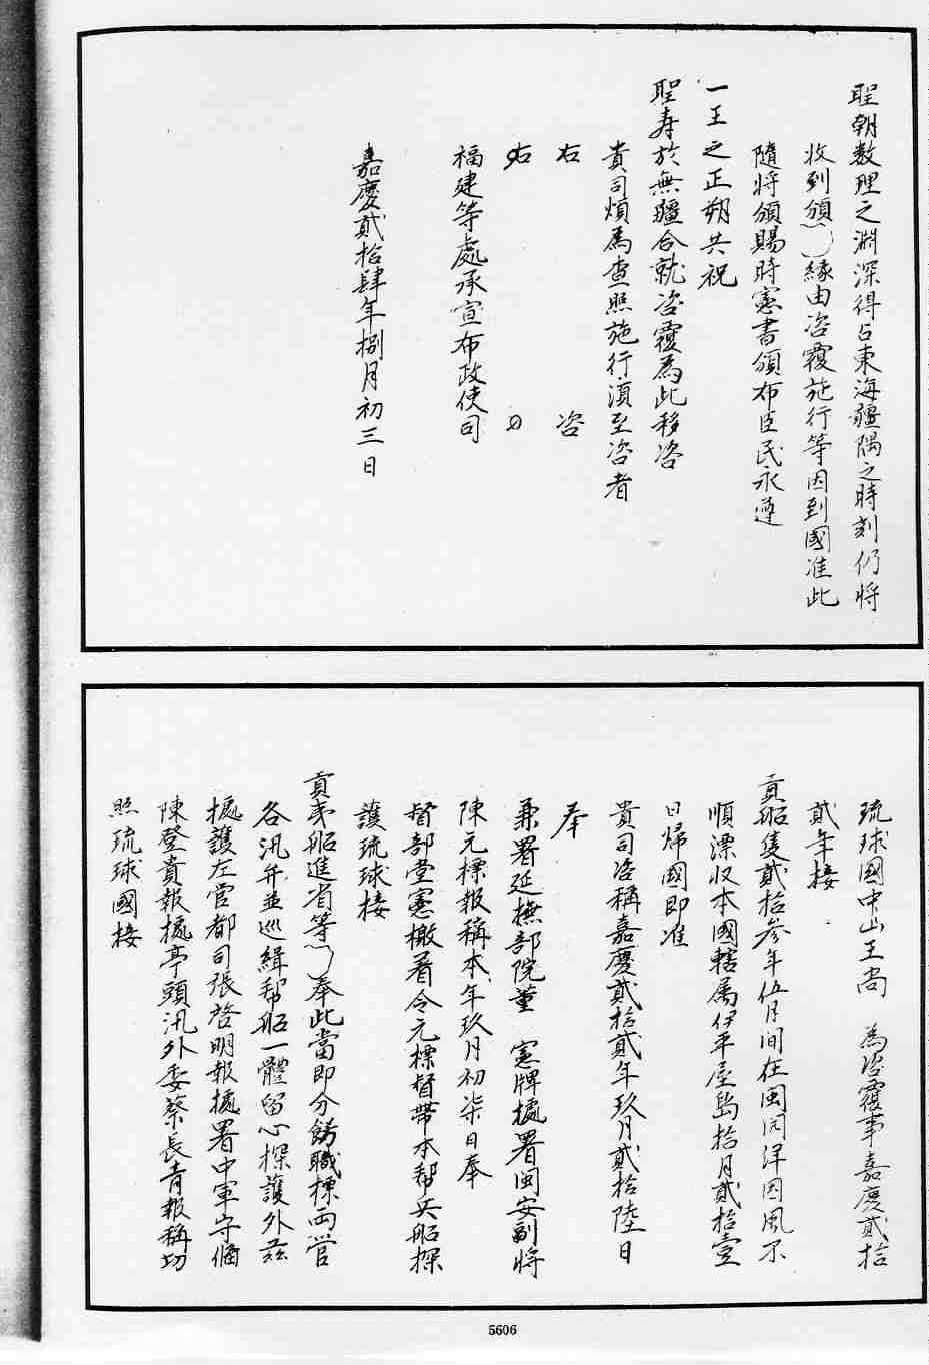 聖朝数理之淵深得占東海疆隅之時刻仍將
收到頒〻緣由咨覆施行等因到國准此
隨將頒賜時憲書頒布臣民永遵
一王之正朔共祝
聖寿於無疆合就咨覆為此移咨
貴司煩為查照施行湏至咨者
右 咨
右
福建等處承宣布政使司
嘉慶貳拾肆年捌月初三日
琉球國中山王尚 為咨覆事嘉慶貳拾
貳年接
貢船隻貳拾参年伍月間在閩開洋因風不
順漂收本國轄属伊平屋島拾月貳拾壹
日帰國即准
貴司咨稱嘉慶貳拾貳年玖月貳拾陸日
奉
兼署延撫部院董 憲牌據署閩安副將
陳元標報稱本年玖月初柒日奉
督部堂憲檄着令元標督帶本帮兵船探
護琉球接
貢弐船進省等〻奉此當即分餙職標両営
各汛弁並巡緝帮船一體留心探護外茲
據護左営都司張啓明報據署中軍守備
陳登貴報據亭頭汛外委蔡長青報稱切
照琉球國接
5606